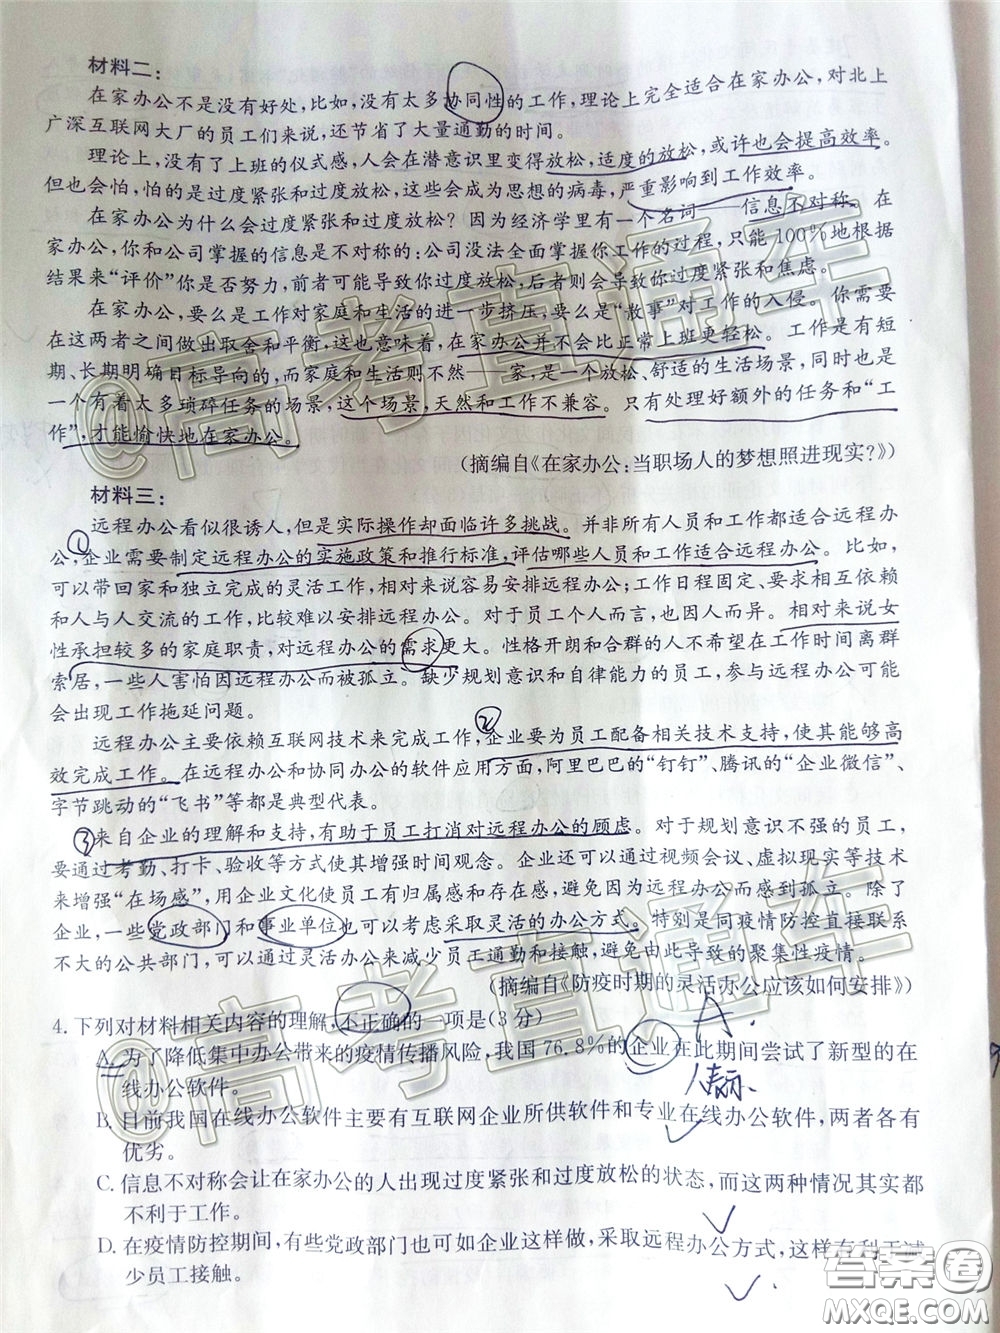 材料二：
在家办公不是没有好处，比如，没有太多协同性的工作，理论上完全适合在家办公，对北上
广深互联网大厂的员工们来说，还节省了大量通勤的时间。
理论上，没有了上班的仪式感，人会在潜意识里变得放松，适度的放松，或许也会提高效率。
但也会怕，怕的是过度紧张和过度放松，这些会成为思想的病毒，严重影响到工作效率。
在家办公为什么会过度紧张和过度放松？因为经济学里有一个名词——信息不对称。在
家办公，你和公司掌握的信息是不对称的：公司没法全面掌握你工作的过程，只能100%地根据
结果来“评价”你是否努力，前者可能导致你过度放松，后者则会导致你过度紧张和焦虑。
在家办公，要么是工作对家庭和生活的进一步挤压，要么是“散事”对工作的入侵。你需要
在这两者之间做出取舍和平衡，这也意味着，在家办公并不会比正常上班更轻松。工作是有短
期、长期明确目标导向的，而家庭和生活则不然——家，是一个放松、舒适的生活场景，同时也是
一个有着太多琐碎任务的场景，这个场景，天然和工作不兼容。只有处理好额外的任务和“工
作”，才能愉快地在家办公。
（摘编自《在家办公：当职场人的梦想照进现实？》）
材料三：
远程办公看似很诱人，但是实际操作却面临许多挑战。并非所有人员和工作都适合远程办
公，企业需要制定远程办公的实施政策和推行标准，评估哪些人员和工作适合远程办公。比如，
可以带回家和独立完成的灵活工作，相对来说容易安排远程办公；工作日程固定、要求相互依赖
和人与人交流的工作，比较难以安排远程办公。对于员工个人而言，也因人而异。相对来说女
性承担较多的家庭职责，对远程办公的需求更大。性格开朗和合群的人不希望在工作时间离群
索居，一些人害怕因远程办公而被孤立。缺少规划意识和自律能力的员工，参与远程办公可能
会出现工作拖延问题。
远程办公主要依赖互联网技术来完成工作，企业要为员工配备相关技术支持，使其能够高
效完成工作。在远程办公和协同办公的软件应用方面，阿里巴巴的“钉钉”、腾讯的“企业微信”、
字节跳动的“飞书”等都是典型代表。
来自企业的理解和支持，有助于员工打消对远程办公的顾虑。对于规划意识不强的员工，
要通过考勤、打卡、验收等方式使其增强时间观念。企业还可以通过视频会议、虚拟现实等技术
来增强“在场感”，用企业文化使员工有归属感和存在感，避免因为远程办公而感到孤立。除了
企业，一些党政部门和事业单位也可以考虑采取灵活的办公方式。特别是同疫情防控直接联系
不大的公共部门，可以通过灵活办公来减少员工通勤和接触，避免由此导致的聚集性疫情。
（摘编自《防疫时期的灵活办公应该如何安排》）
4. 下列对材料相关内容的理解，不正确的一项是（3分）
A. 为了降低集中办公带来的疫情传播风险，我国76.8%的企业在此期间尝试了新型的在
线办公软件。
B. 目前我国在线办公软件主要有互联网企业所供软件和专业在线办公软件，两者各有
优劣。
C. 信息不对称会让在家办公的人出现过度紧张和过度放松的状态，而这两种情况其实都
不利于工作。
D. 在疫情防控期间，有些党政部门也可如企业这样做，采取远程办公方式，这样有利于减
少员工接触。
①
②
③
A.
@高考直通车
@高考直通车
答案卷
MXQE.COM